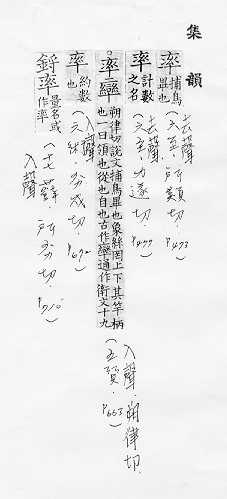 集韻
率 捕鳥
畢也
(去聲、六至、所類切. P473)
率 計數
之名
(去聲 六至、力遂切. P477)
率 朔律切說文捕鳥畢也象絲罔上下其竿柄
也一曰領也從也自也古作 通作衛文十九
(入聲 朔律切. 五質. P663)
率 約數
也
(入聲 六術、劣戌切. P672)
鋝率 量名或
作率
(十七薛 所劣切. P710)
入聲